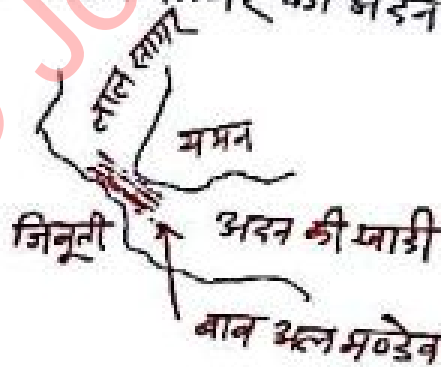 को अदन
लाल सागर
यमन
जिबूती
अदन की खाडी
बाब अल मण्डेब